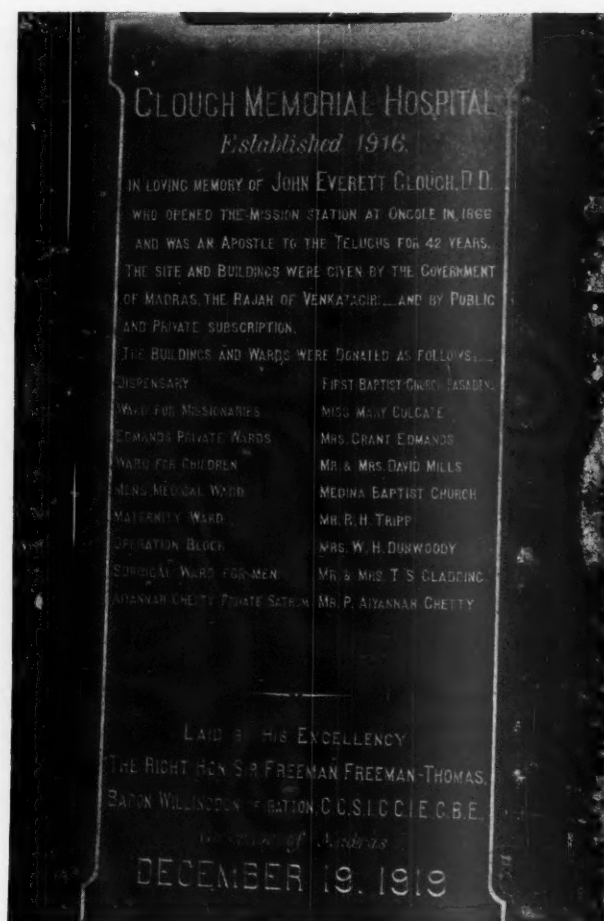 CLOUGH MEMORIAL HOSPITAL
Established 1916.
IN LOVING MEMORY OF JOHN EVERETT CLOUGH, D.D.
WHO OPENED THE MISSION STATION AT ONGOLE IN 1866
AND WAS AN APOSTLE TO THE TELUGUS FOR 42 YEARS.
THE SITE AND BUILDINGS WERE GIVEN BY THE GOVERNMENT
OF MADRAS, THE RAJAH OF VENKATAGIRI AND BY PUBLIC
AND PRIVATE SUBSCRIPTION.
THE BUILDINGS AND WARDS WERE DONATED AS FOLLOWS:
DISPENSARY FIRST BAPTIST CHURCH PASADENA
WARD FOR MISSIONARIES MISS MARY COLGATE
EDMANDS PRIVATE WARDS MRS. GRANT EDMANDS
WARD FOR CHILDREN MR. & MRS. DAVID MILLS
MENS MEDICAL WARD MEDINA BAPTIST CHURCH
MATERNITY WARD MR. R. H. TRIPP
OPERATION BLOCK MRS. W. H. DUNWOODY
SURGICAL WARD FOR MEN MR. & MRS. T S GLADDING
AIYANNAH CHETTY PRIVATE SATRUM MR. P. AIYANNAH CHETTY
LAID BY HIS EXCELLENCY
THE RIGHT HON. SIR FREEMAN FREEMAN-THOMAS,
BARON WILLINGDON OF RATTON, G.C.S.I. G.C.I.E. G.B.E.,
Governor of Madras
DECEMBER 19, 1919